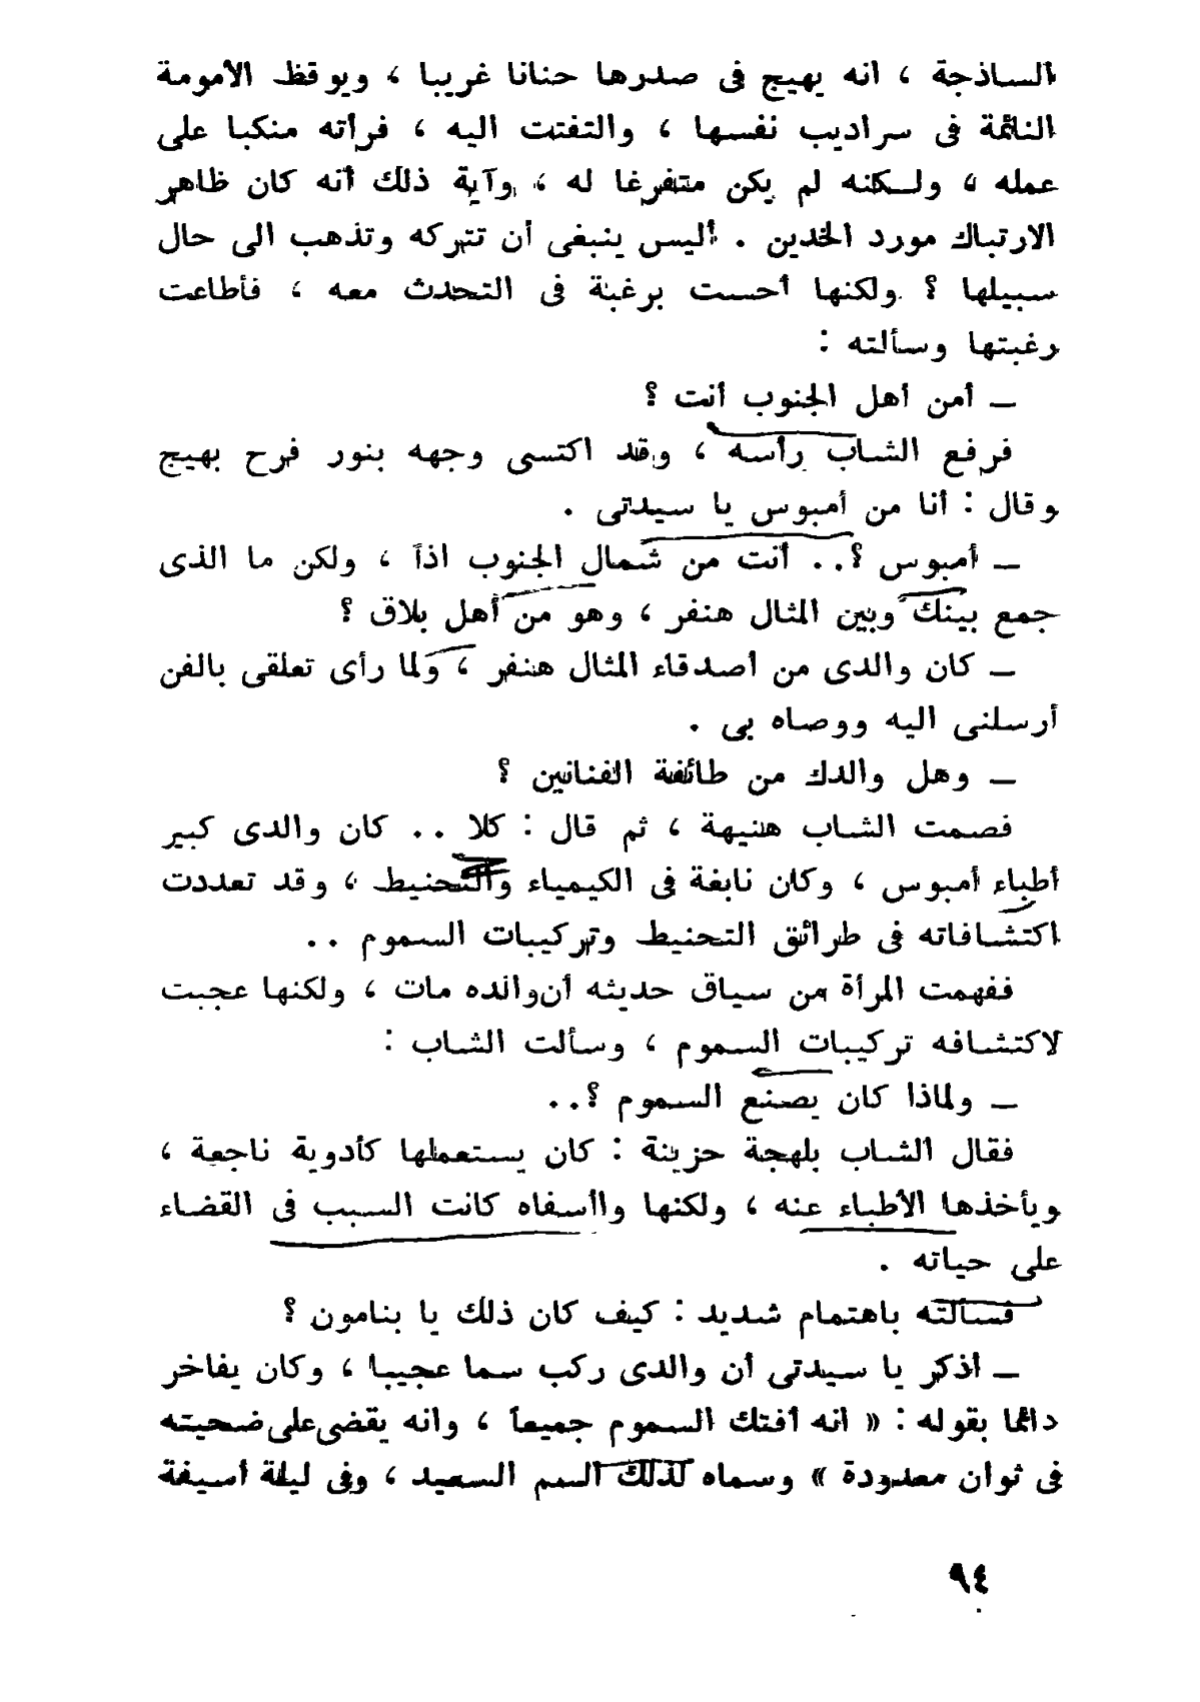 الساذجة ، انه يهيج فى صدرها حنانا غريبا ، ويوقظ الأمومة
النائمة فى سراديب نفسها ، والتفتت اليه ، فرأته منكبا على
عمله ، ولكنه لم يكن متفرغا له ، وآية ذلك أنه كان ظاهر
الارتباك مورد الخدين . أليس ينبغى أن تتركه وتذهب الى حال
سبيلها ؟ ولكنها أحست برغبة فى التحدث معه ، فأطاعت
رغبتها وسألته :
ـ أمن أهل الجنوب أنت ؟
فرفع الشاب رأسه ، وقد اكتسى وجهه بنور فرح بهيج
وقال : أنا من أمبوس يا سيدتى .
ـ أمبوس ؟.. أنت من شمال الجنوب اذاً ، ولكن ما الذى
جمع بينك وبين المثال هنفر ، وهو من أهل بلاق ؟
ـ كان والدى من أصدقاء المثال هنفر ، ولما رأى تعلقى بالفن
أرسلنى اليه ووصاه بى .
ـ وهل والدك من طائفة الفنانين ؟
فصمت الشاب هنيهة ، ثم قال : كلا .. كان والدى كبير
أطباء أمبوس ، وكان نابغة فى الكيمياء والتحنيط ، وقد تعددت
اكتشافاته فى طرائق التحنيط وتركيبات السموم ..
ففهمت المرأة من سياق حديثه أن والده مات ، ولكنها عجبت
لاكتشافه تركيبات السموم ، وسألت الشاب :
ـ ولماذا كان يصنع السموم ؟..
فقال الشاب بلهجة حزينة : كان يستعملها كأدوية ناجعة ،
ويأخذها الأطباء عنه ، ولكنها واأسفاه كانت السبب فى القضاء
على حياته .
فسألته باهتمام شديد : كيف كان ذلك يا بنامون ؟
ـ أذكر يا سيدتى أن والدى ركب سما عجيبا ، وكان يفاخر
دائما بقوله : « انه أفتك السموم جميعاً ، وانه يقضى على ضحيته
فى ثوان معدودة » وسماه لذلك السم السعيد ، وفى ليلة أسيفة
٩٤